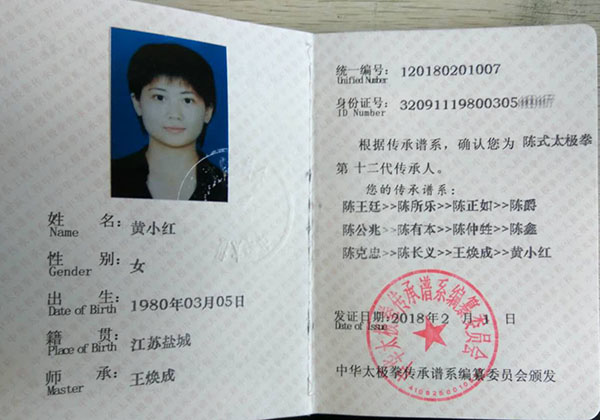 姓 名: 黄小红
Name
性 别: 女
Gender
出 生: 1980年03月05日
Date of Birth
籍 贯: 江苏盐城
Place of Birth
师 承: 王焕成
Master
统一编号: 120180201007
Unified Number
身份证号: 32091119800305
ID Number
根据传承谱系,确认您为 陈式太极拳
第 十二代传承人。
您的传承谱系:
陈王廷>>陈所乐>>陈正如>>陈爵
陈公兆>>陈有本>>陈仲甡>>陈鑫
陈克忠>>陈长义>>王焕成>>黄小红
发证日期:2018年2 月 1 日
Date of Issue
中华太极拳传承谱系编纂委员会
中华太极拳传承谱系编纂委员会颁发